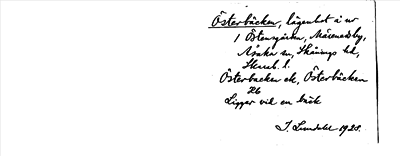 Österbäcken, lägenhet å nr
1 Östensgården,
Åsaka sn, Skånings hd,
Skarab. l.
Österbacken ek, Österbäcken
Hb
Ligger vid en bäck
J. Lundahl 1928.